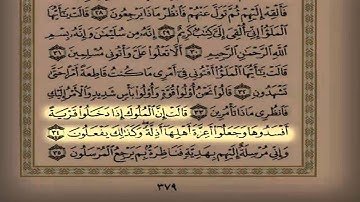 فَأَلْقِهْ إِلَيْهِمْ ثُمَّ تَوَلَّ عَنْهُمْ فَانظُرْ مَاذَا يَرْجِعُونَ ٢٨
قَالَتْ يَٰٓأَيُّهَا
ٱلْمَلَؤُا۟ إِنِّىٓ أُلْقِىَ إِلَىَّ كِتَٰبٌ كَرِيمٌ ٢٩ إِنَّهُۥ مِن سُلَيْمَٰنَ وَإِنَّهُۥ بِسْمِ
ٱللَّهِ ٱلرَّحْمَٰنِ ٱلرَّحِيمِ ٣٠ أَلَّا تَعْلُوا۟ عَلَىَّ وَأْتُونِى مُسْلِمِينَ ٣١
قَالَتْ يَٰٓأَيُّهَا ٱلْمَلَؤُا۟ أَفْتُونِى فِىٓ أَمْرِى مَا كُنتُ قَاطِعَةً أَمْرًا حَتَّىٰ
تَشْهَدُونِ ٣٢ قَالُوا۟ نَحْنُ أُو۟لُوا۟ قُوَّةٍ وَأُو۟لُوا۟ بَأْسٍ شَدِيدٍ وَٱلْأَمْرُ إِلَيْكِ
فَٱنظُرِى مَاذَا تَأْمُرِينَ ٣٣ قَالَتْ إِنَّ ٱلْمُلُوكَ إِذَا دَخَلُوا۟ قَرْيَةً
أَفْسَدُوهَا وَجَعَلُوٓا۟ أَعِزَّةَ أَهْلِهَآ أَذِلَّةً وَكَذَٰلِكَ يَفْعَلُونَ ٣٤
وَإِنِّى مُرْسِلَةٌ إِلَيْهِم بِهَدِيَّةٍ فَنَاظِرَةٌۢ بِمَ يَرْجِعُ ٱلْمُرْسَلُونَ ٣٥
٣٧٩